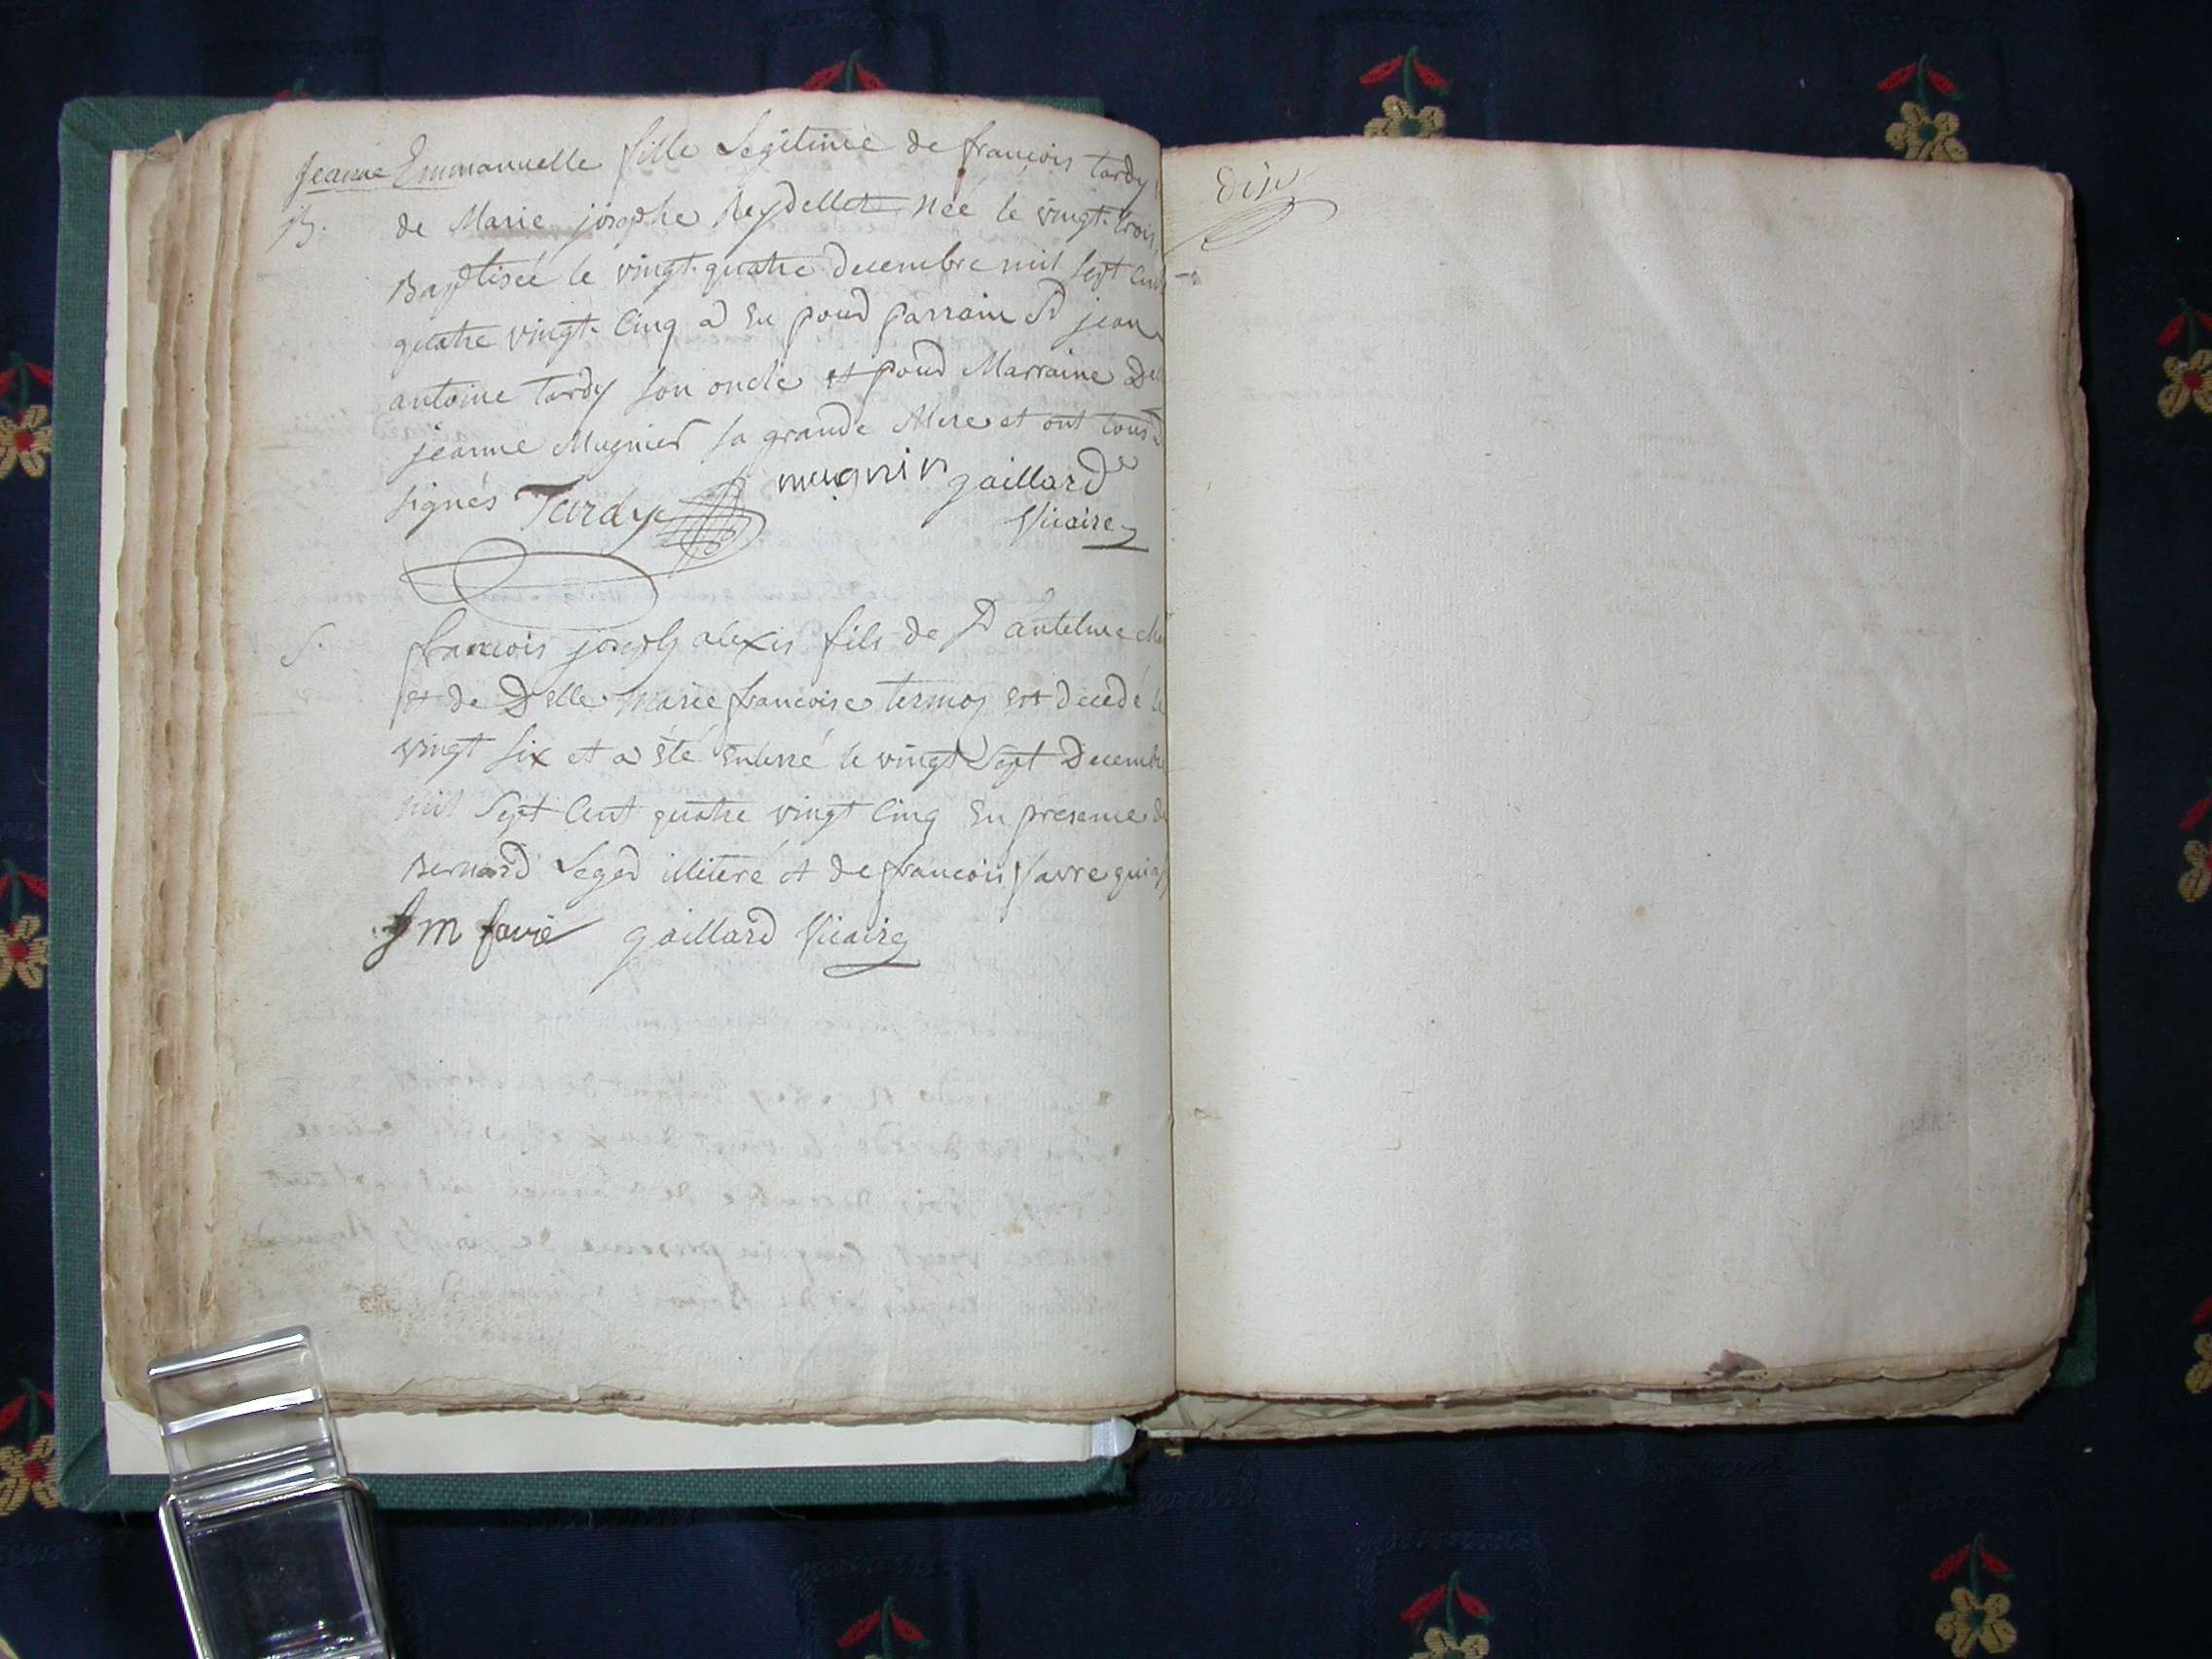 Jeanne Emmanuelle fille Legitimée de françois tardy
B. de Marie josephe Reydellet née le vingt-trois
Baptisée le vingt-quatre decembre mil sept cent
quatre vingt-cinq a Eu pour parrain Sr jean
antoine tardy son oncle et pour Marraine Dlle
jeanne Mugnier sa grande Mere et ont tous
signés Tardy mugnier gaillard
Vicaire
S. francois joseph alexis fils de Sr antelme
et de Delle Marie francoise termoz est decedé le
vingt six et a eté enterré le vingt Sept Decembre
mil Sept Cent quatre vingt Cinq En presence de
Bernard Leger illiteré et de francois favre qui a
Jm favre gaillard Vicaire
dix